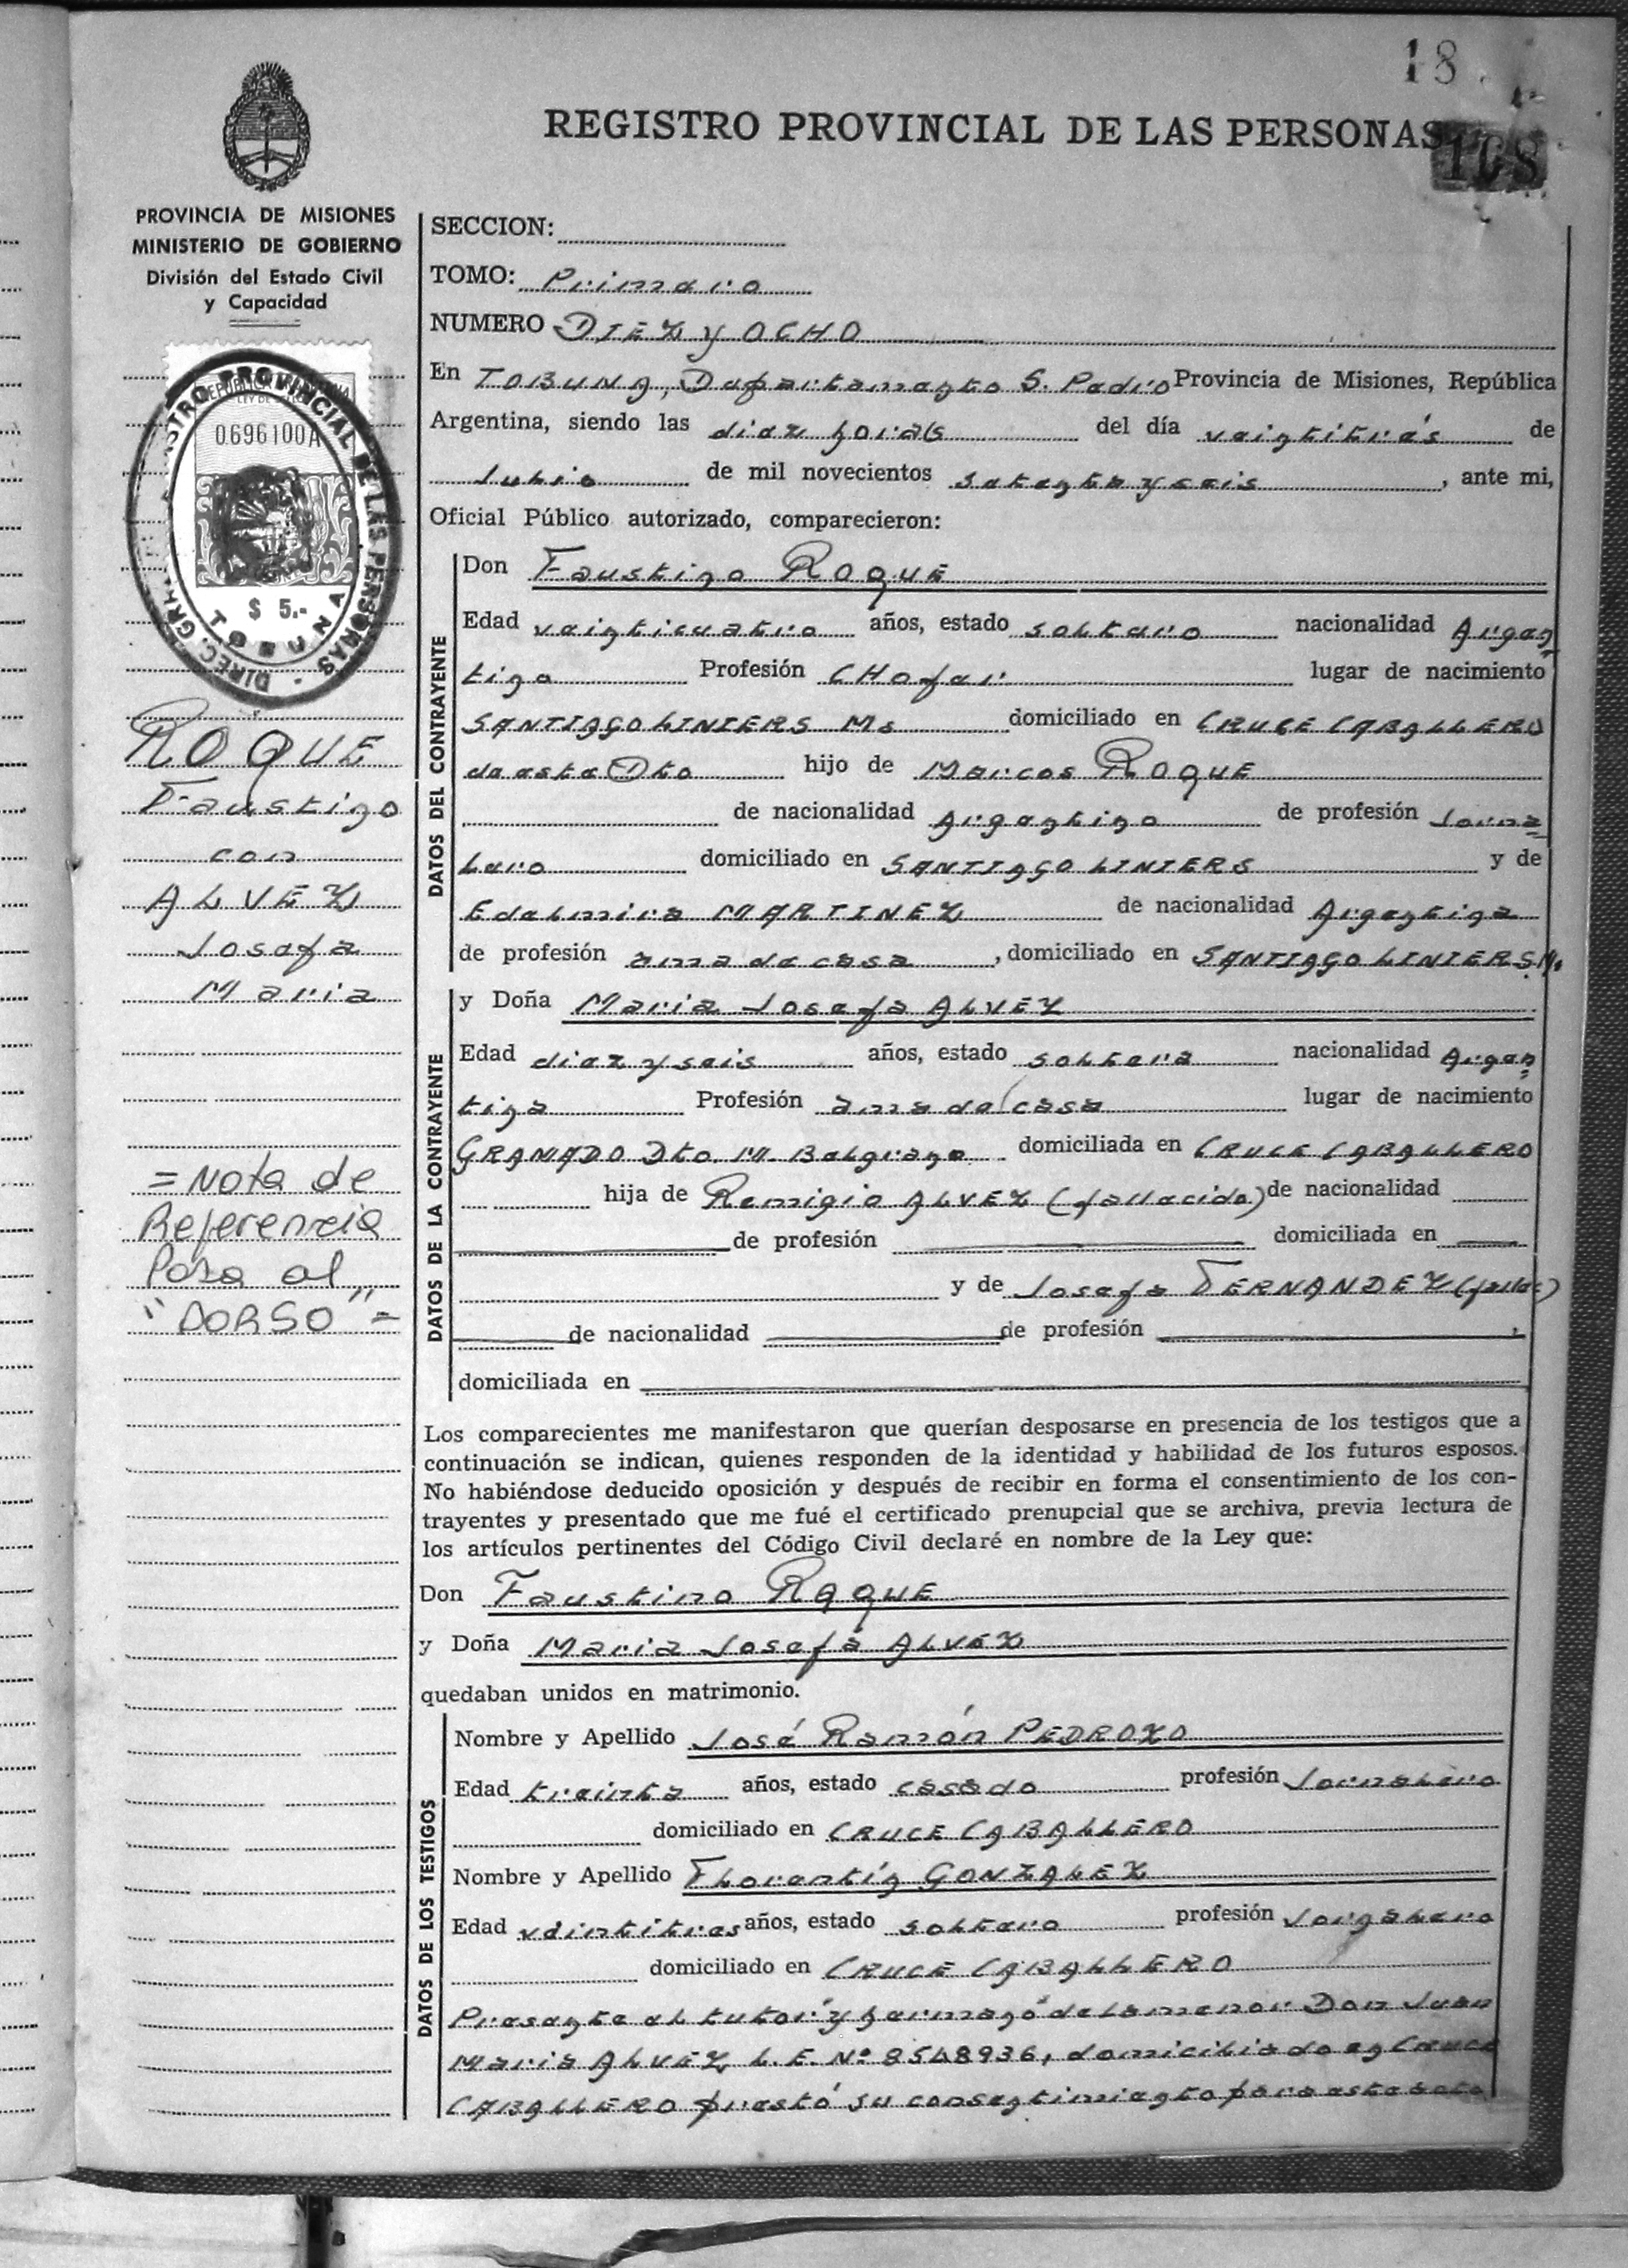 18
REGISTRO PROVINCIAL DE LAS PERSONAS
108
PROVINCIA DE MISIONES
MINISTERIO DE GOBIERNO
División del Estado Civil
y Capacidad
0696100A
$ 5.-
TOBUNA
ROQUE
Faustino
con
ALVEZ
Josefa
Maria
= Nota de
Referencia
Pasa al
"DORSO" =
SECCION:
TOMO: Primero
NUMERO DIEZ y OCHO
En TOBUNA, Departamento S. Pedro Provincia de Misiones, República
Argentina, siendo las diez horas del día veintitrés de
Julio de mil novecientos setenta y seis, ante mi,
Oficial Público autorizado, comparecieron:
DATOS DEL CONTRAYENTE
Don Faustino ROQUE
Edad veinticuatro años, estado soltero nacionalidad Argen
tino Profesión CHofer lugar de nacimiento
SANTIAGO LINIERS Ms domiciliado en CRUCE CABALLERO
de este Dto hijo de Marcos ROQUE
de nacionalidad Argentino de profesión Jorna
lero domiciliado en SANTIAGO LINIERS y de
Edelmira MARTINEZ de nacionalidad Argentina
de profesión ama de casa, domiciliado en SANTIAGO LINIERS M.
DATOS DE LA CONTRAYENTE
y Doña Maria Josefa ALVEZ
Edad diez y seis años, estado soltera nacionalidad Argen
tina Profesión ama de casa lugar de nacimiento
GRANADO Dto. M. Belgrano domiciliada en CRUCE CABALLERO
hija de Remigio ALVEZ (fallecido) de nacionalidad
de profesión domiciliada en
y de Josefa FERNANDEZ (fallec)
de nacionalidad de profesión
domiciliada en
Los comparecientes me manifestaron que querían desposarse en presencia de los testigos que a
continuación se indican, quienes responden de la identidad y habilidad de los futuros esposos.
No habiéndose deducido oposición y después de recibir en forma el consentimiento de los con-
trayentes y presentado que me fué el certificado prenupcial que se archiva, previa lectura de
los artículos pertinentes del Código Civil declaré en nombre de la Ley que:
Don Faustino ROQUE
y Doña Maria Josefa ALVEZ
quedaban unidos en matrimonio.
DATOS DE LOS TESTIGOS
Nombre y Apellido José Ramón PEDROZO
Edad treinta años, estado casado profesión Jornalero
domiciliado en CRUCE CABALLERO
Nombre y Apellido Florentín GONZALEZ
Edad veintitres años, estado soltero profesión Jornalero
domiciliado en CRUCE CABALLERO
Presente el tutor "y hermano" de la menor Don Juan
Maria ALVEZ, L.E. Nº 8548936, domiciliado en Cruce
CABALLERO prestó su consentimiento para este acto